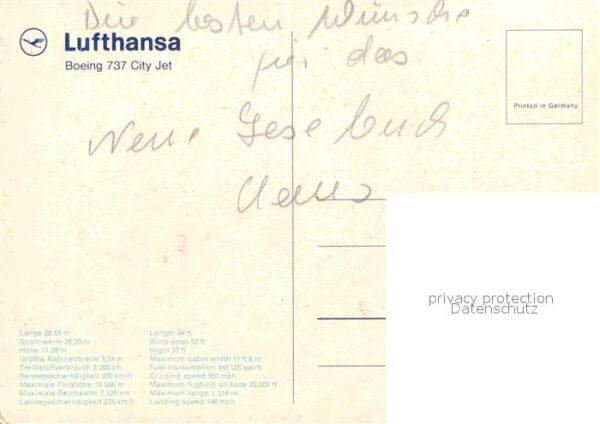 Die besten Wünsche
Lufthansa
für das
Boeing 737 City Jet
Printed in Germany
Neue Lesebuch
privacy protection
Datenschutz
Länge 28,65 m
Spannweite 28,35 m
Höhe 11,28 m
Größte Kabinenbreite 3,54 m
Treibstoffverbrauch 3.200 l/h
Reisegeschwindigkeit 900 km/h
Maximale Flughöhe 10.500 m
Maximale Reichweite 2.120 km
Landegeschwindigkeit 235 km/h
Length 94 ft
Wing-span 93 ft
Hight 37 ft
Maximum cabin width 11 ft 8 in
Fuel consumption 845 US gal/h
Cruising speed 560 mph
Maximum flighing altitude 35,000 ft
Maximum range 1,318 ml
Landing speed 146 mph